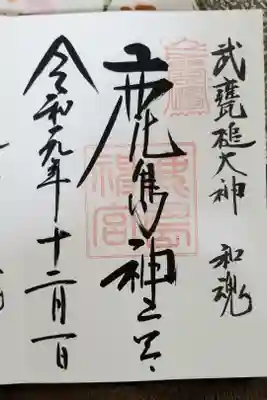 武甕槌大神 和魂
鹿島神宮
令和元年十二月一日
鹿島
神宮